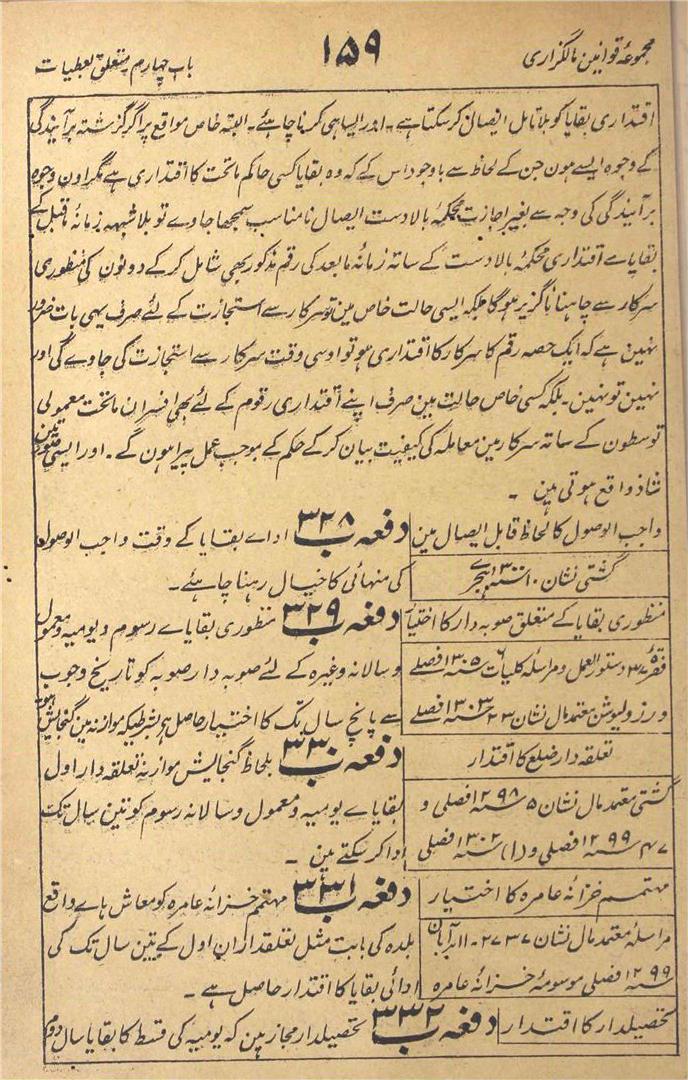 مجموعۂ قوانین مالگزاری
۱۵۹
باب چہارم متعلق بعطیات
اقتداری بقایا کو بلا تامل ایصال کر سکتا ہے۔ اور ایسا ہی کرنا چاہئے۔ البتہ خاص مواقع پر اگر گزشتہ برآیندگی
کے وجوہ ایسے ہون جن کے لحاظ سے باوجود اس کے کہ وہ بقایا کسی حاکم ماتحت کا اقتداری ہے مگر اون وجوہ
برآیندگی کی وجہ سے بغیر اجازت محکمۂ بالادست ایصال نامناسب سمجھا جاوے تو بلا شبہہ زمانۂ ماقبل کے
بقایاے اقتداری محکمۂ بالادست کے ساتہ زمانۂ مابعد کی رقم مذکور بھی شامل کر کے دونون کی منظوری
سرکار سے چاہنا ناگزیر ہوگا بلکہ ایسی حالت خاص مین تو سرکار سے استجازت کے لئے صرف یہی بات ضرور
نہین ہے کہ ایک حصہ رقم کا سرکار کا اقتداری ہو تو اوسی وقت سرکار سے استجازت کی جاوے گی اور
نہین تو نہین۔ بلکہ کسی خاص حالت مین صرف اپنے اقتداری رقوم کے لئے بھی افسران ماتحت معمولی
توسطون کے ساتہ سرکار مین معاملہ کی کیفیت بیان کر کے حکم کے بموجب عمل پیرا ہون گے۔ اور ایسی صورتین
شاذ واقع ہوتی ہین ۔
واجب الوصول کا لحاظ قابل ایصال مین
گشتی نشان ۱۰
دفعہ ۳۲۸ ب اداے بقایا کے وقت واجب الوصول
کی منہائی کا خیال رہنا چاہئے۔
منظوری بقایا کے متعلق صوبہ دار کا اختیار
دستور العمل و مراسلۂ کلیات ۱۳۰۵ فصلے
و رزولیوشن معتمد مال نشان ۲۳ ۱۳۰۳ فصلے
دفعہ ۳۲۹ ب منظوری بقایاے رسوم و یومیہ و معمول
و سالانہ وغیرہ کے لئے صوبہ دار صوبہ کو تاریخ وجوب
سے پانچ سال تک کا اختیار حاصل ہے بشرطیکہ موازنہ مین گنجایش ہو
تعلقہ دار ضلع کا اقتدار
گشتی معتمد مال نشان ۵ ۱۲۹۸ فصلی و
۱۲۹۹ فصلی و (۱) ۱۳۰۲ فصلی
دفعہ ۳۳۰ ب بلحاظ گنجایش موازنہ تعلقہ دار اول
بقایاے یومیہ و معمول و سالانہ رسوم کو تین سال تک
ادا کر سکتے ہین ۔
مہتمم خزانۂ عامرہ کا اختیار
مراسلۂ معتمد مال نشان ۲۷۳۷ - ۱۱ آبان
۱۲۹۹ فصلی موسومۂ خزانۂ عامرہ
دفعہ ۳۳۱ ب مہتمم خزانۂ عامرہ کو معاش ہاے واقع
بلدہ کی بابت مثل تعلقداران اول کے تین سال تک کی
ادائی بقایا کا اقتدار حاصل ہے ۔
تحصیلدار کا اقتدار
دفعہ ۳۳۲ ب تحصیلدار مجاز ہین کہ یومیہ کی قسط کا بقایا سال دوم